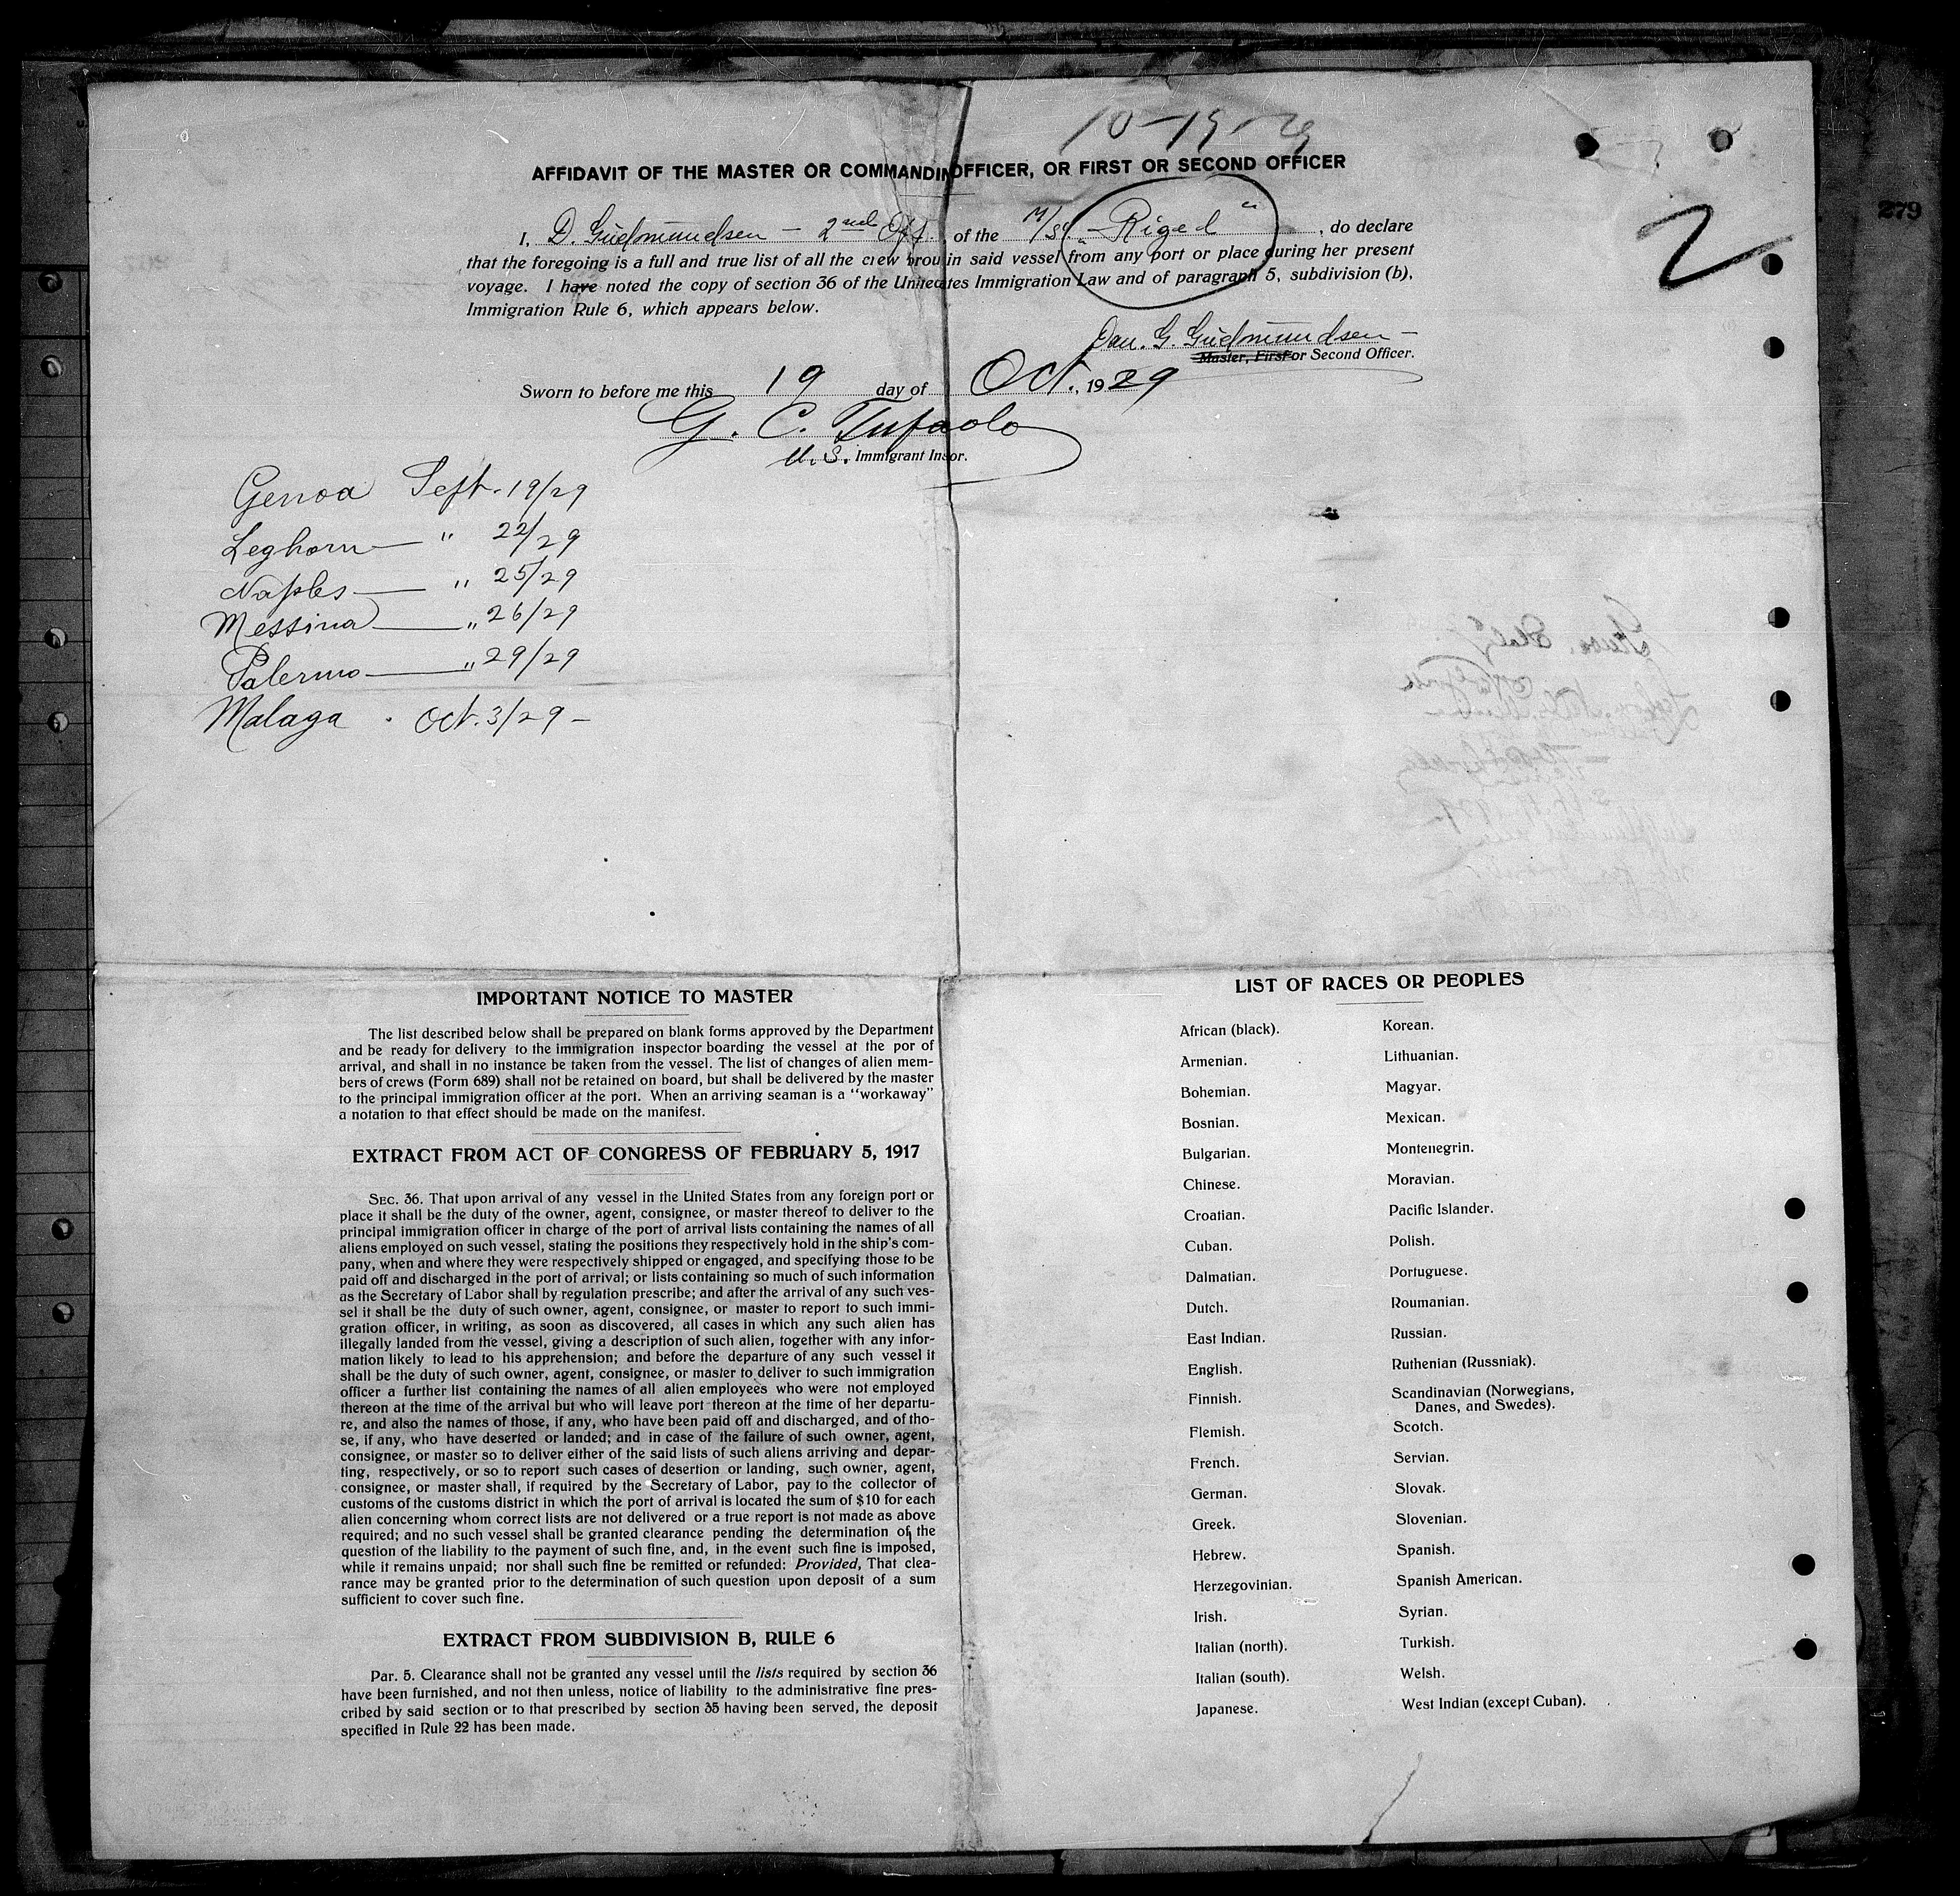 10-19-29
279
AFFIDAVIT OF THE MASTER OR COMMANDIN OFFICER, OR FIRST OR SECOND OFFICER
2
I, D. Gudmundsen - 2nd Off. of the M/S "Rigel", do declare
that the foregoing is a full and true list of all the crew brou in said vessel from any port or place during her present
voyage. I have noted the copy of section 36 of the Unite ates Immigration Law and of paragraph 5, subdivision (b),
Immigration Rule 6, which appears below.
Dan. G. Gudmundsen
Master, First or Second Officer.
Sworn to before me this 19 day of Oct., 1929
G. C. Tufaolo
U.S. Immigrant Insor.
Genoa Sept. 19/29
Leghorn — " 22/29
Naples — " 25/29
Messina — " 26/29
Palermo — " 29/29
Malaga . Oct. 3/29 -
IMPORTANT NOTICE TO MASTER
The list described below shall be prepared on blank forms approved by the Department
and be ready for delivery to the immigration inspector boarding the vessel at the por of
arrival, and shall in no instance be taken from the vessel. The list of changes of alien mem-
bers of crews (Form 689) shall not be retained on board, but shall be delivered by the master
to the principal immigration officer at the port. When an arriving seaman is a "workaway"
a notation to that effect should be made on the manifest.
EXTRACT FROM ACT OF CONGRESS OF FEBRUARY 5, 1917
SEC. 36. That upon arrival of any vessel in the United States from any foreign port or
place it shall be the duty of the owner, agent, consignee, or master thereof to deliver to the
principal immigration officer in charge of the port of arrival lists containing the names of all
aliens employed on such vessel, stating the positions they respectively hold in the ship's com-
pany, when and where they were respectively shipped or engaged, and specifying those to be
paid off and discharged in the port of arrival; or lists containing so much of such information
as the Secretary of Labor shall by regulation prescribe; and after the arrival of any such ves-
sel it shall be the duty of such owner, agent, consignee, or master to report to such immi-
gration officer, in writing, as soon as discovered, all cases in which any such alien has
illegally landed from the vessel, giving a description of such alien, together with any infor-
mation likely to lead to his apprehension; and before the departure of any such vessel it
shall be the duty of such owner, agent, consignee, or master to deliver to such immigration
officer a further list containing the names of all alien employees who were not employed
thereon at the time of the arrival but who will leave port thereon at the time of her departu-
re, and also the names of those, if any, who have been paid off and discharged, and of tho-
se, if any, who have deserted or landed; and in case of the failure of such owner, agent,
consignee, or master so to deliver either of the said lists of such aliens arriving and depar-
ting, respectively, or so to report such cases of desertion or landing, such owner, agent,
consignee, or master shall, if required by the Secretary of Labor, pay to the collector of
customs of the customs district in which the port of arrival is located the sum of $10 for each
alien concerning whom correct lists are not delivered or a true report is not made as above
required; and no such vessel shall be granted clearance pending the determination of the
question of the liability to the payment of such fine, and, in the event such fine is imposed,
while it remains unpaid; nor shall such fine be remitted or refunded: Provided, That clea-
rance may be granted prior to the determination of such question upon deposit of a sum
sufficient to cover such fine.
EXTRACT FROM SUBDIVISION B, RULE 6
Par. 5. Clearance shall not be granted any vessel until the lists required by section 36
have been furnished, and not then unless, notice of liability to the administrative fine pres-
cribed by said section or to that prescribed by section 35 having been served, the deposit
specified in Rule 22 has been made.
LIST OF RACES OR PEOPLES
African (black).
Armenian.
Bohemian.
Bosnian.
Bulgarian.
Chinese.
Croatian.
Cuban.
Dalmatian.
Dutch.
East Indian.
English.
Finnish.
Flemish.
French.
German.
Greek.
Hebrew.
Herzegovinian.
Irish.
Italian (north).
Italian (south).
Japanese.
Korean.
Lithuanian.
Magyar.
Mexican.
Montenegrin.
Moravian.
Pacific Islander.
Polish.
Portuguese.
Roumanian.
Russian.
Ruthenian (Russniak).
Scandinavian (Norwegians,
Danes, and Swedes).
Scotch.
Servian.
Slovak.
Slovenian.
Spanish.
Spanish American.
Syrian.
Turkish.
Welsh.
West Indian (except Cuban).